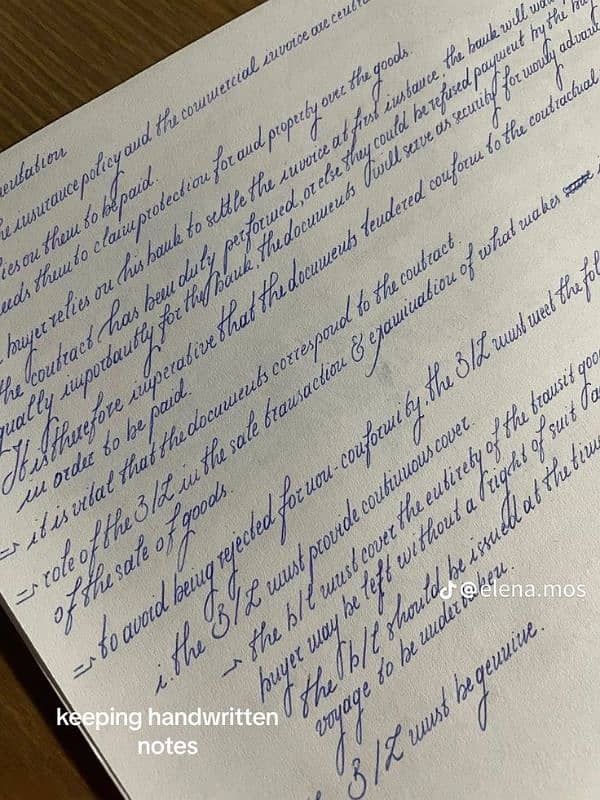 the insurance policy and the commercial invoice are
ies on them to be paid.
needs them to claim protection for and property over the goods.
buyer relies on his bank to settle the invoice at first instance, the bank will
the contract has been duly performed, or else they could be refused payment by the
qually importantly for the bank, the documents will serve as security for money
It is therefore imperative that the documents tendered conform to the contractual
in order to be paid.
⇒ it is vital that the documents correspond to the contract.
⇒ role of the B/L in the sale transaction & examination of what makes
of the sale of goods.
⇒ to avoid being rejected for non-conformity, the B/L must meet the
i. the B/L must provide continuous cover.
→ the b/l must cover the entirety of the transit
buyer may be left without a right of suit
the b/l should be issued at the time
voyage to be undertaken.
B/L must be genuine.
TikTok @elena.mos
keeping handwritten
notes